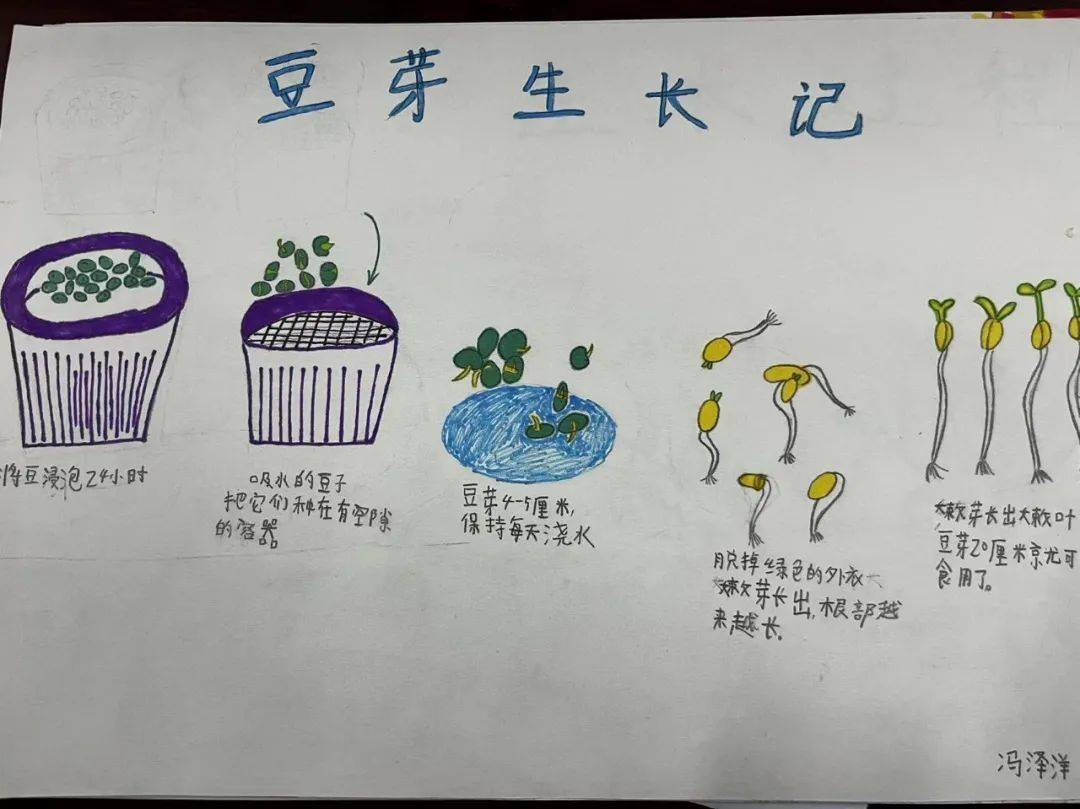 豆芽生长记
将豆浸泡24小时
吸水的豆子
把它们种在有空隙
的容器
豆芽4-5厘米,
保持每天浇水
脱掉绿色的外衣
嫩芽长出,根部越
来越长。
嫩芽长出嫩叶
豆芽20厘米就可
食用了。
冯泽洋